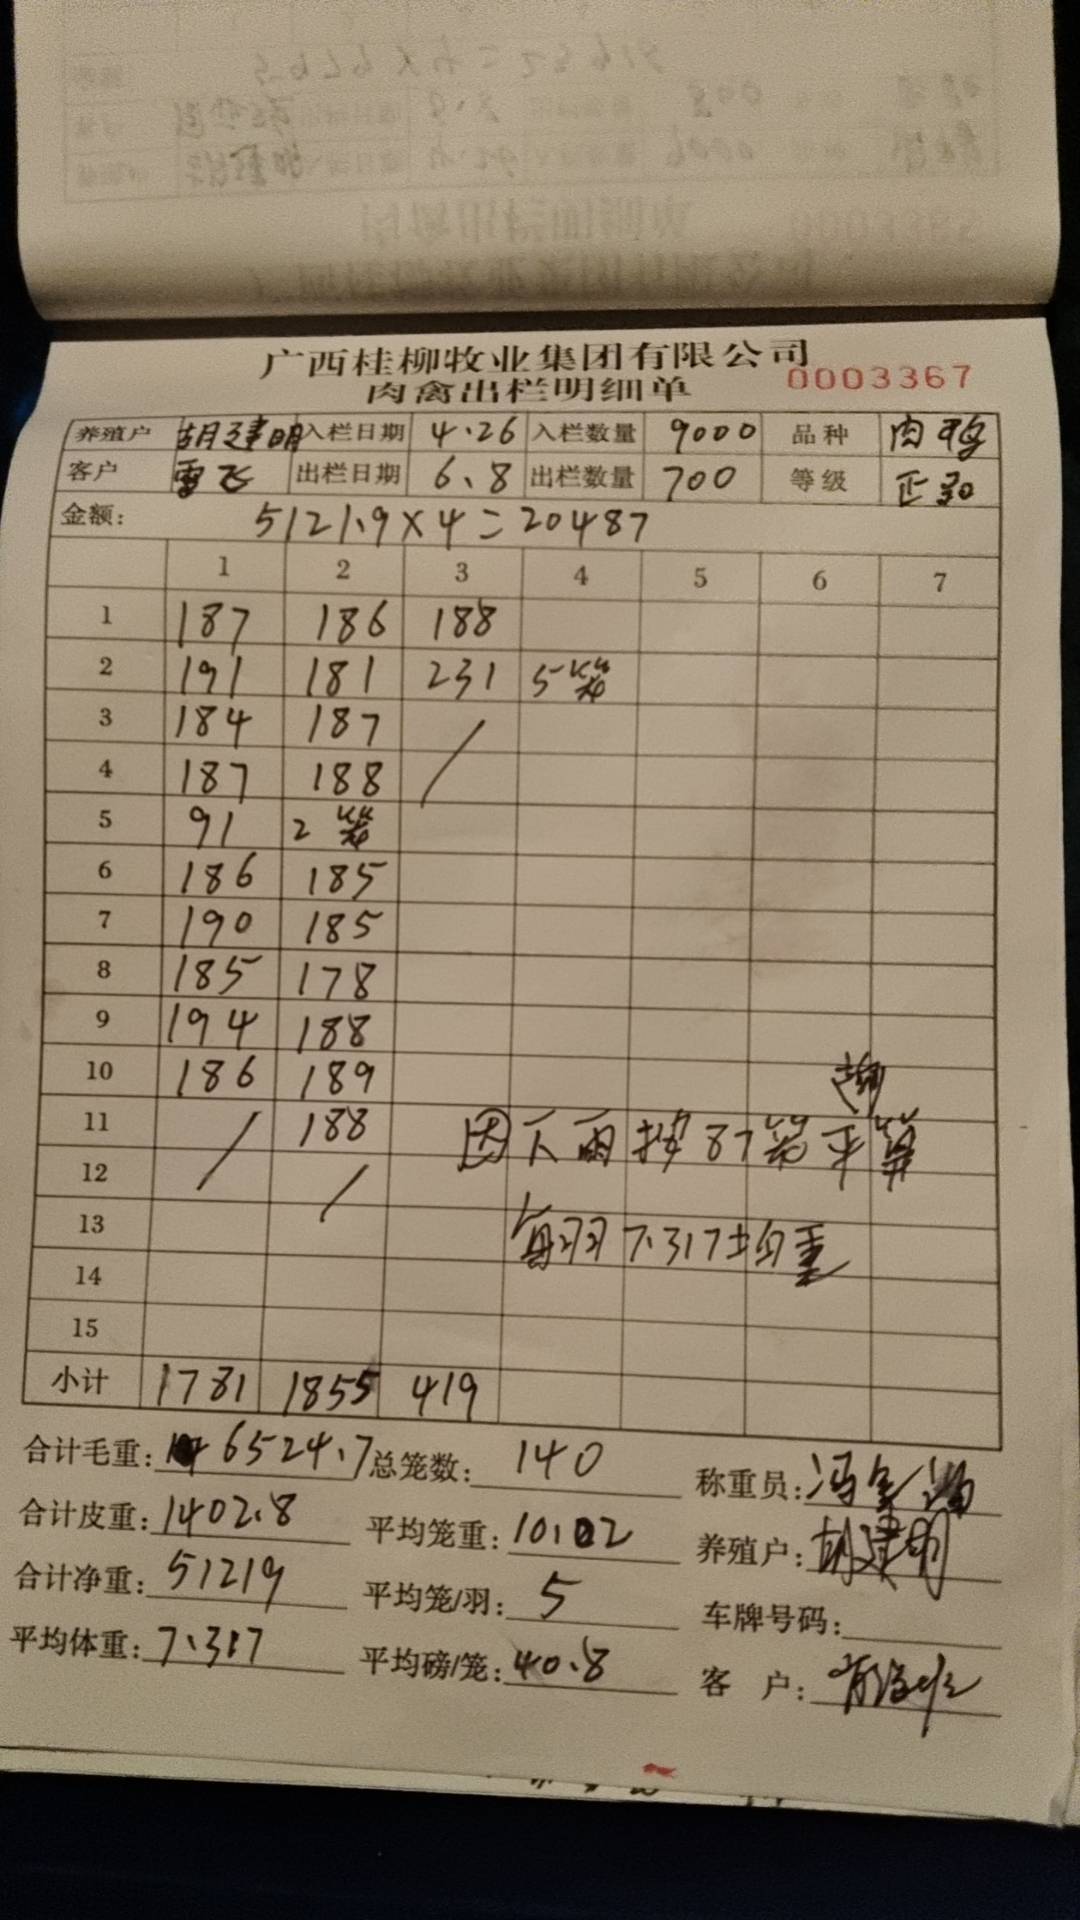 广西桂柳牧业集团有限公司
肉禽出栏明细单 0003367
养殖户 胡建明 入栏日期 4.26 入栏数量 9000 品种 肉鸭
客户 雷飞 出栏日期 6.8 出栏数量 700 等级 正品
金额: 5121.9×4=20487
1 2 3 4 5 6 7
1 187 186 188
2 191 181 231 5笼
3 184 187 /
4 187 188
5 91 2笼
6 186 185
7 190 185
8 185 178
9 194 188
10 186 189
11 / 188 因下雨按87笼平算
12 /
13 每羽7.317均重
14
15
小计 1781 1855 419
合计毛重: 6524.7 总笼数: 140 称重员:
合计皮重: 1402.8 平均笼重: 10.02 养殖户: 胡建明
合计净重: 51219 平均笼/羽: 5 车牌号码:
平均体重: 7.317 平均磅/笼: 40.8 客 户: